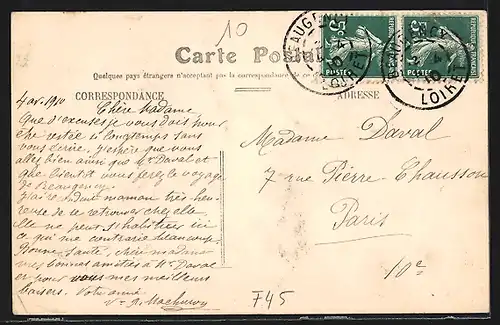 10
Carte Postale
Quelques pays étrangers n'acceptent pas la correspondance
CORRESPONDANCE
ADRESSE
BEAUGENCY
LOIRET
5c
POSTES
5c
POSTES
BEAUGENCY
LOIRET
4 av. 1910
Chère Madame
Que d'excuses je vous dois pour
être restée si longtemps sans
vous écrire. J'espère que vous
allez bien ainsi que Mr Daval et
que bientôt vous ferez le voyage
de Beaugency.
maman très heu-
reuse de se retrouver chez elle.
Elle ne peut s'habituer ici
ce qui me contrarie beaucoup.
Bonne santé, chère madame
mes bonnes amitiés à Mr Daval
et pour vous mes meilleurs
baisers. Votre amie
Madame Daval
7 rue Pierre Chausson
Paris
10e
F45